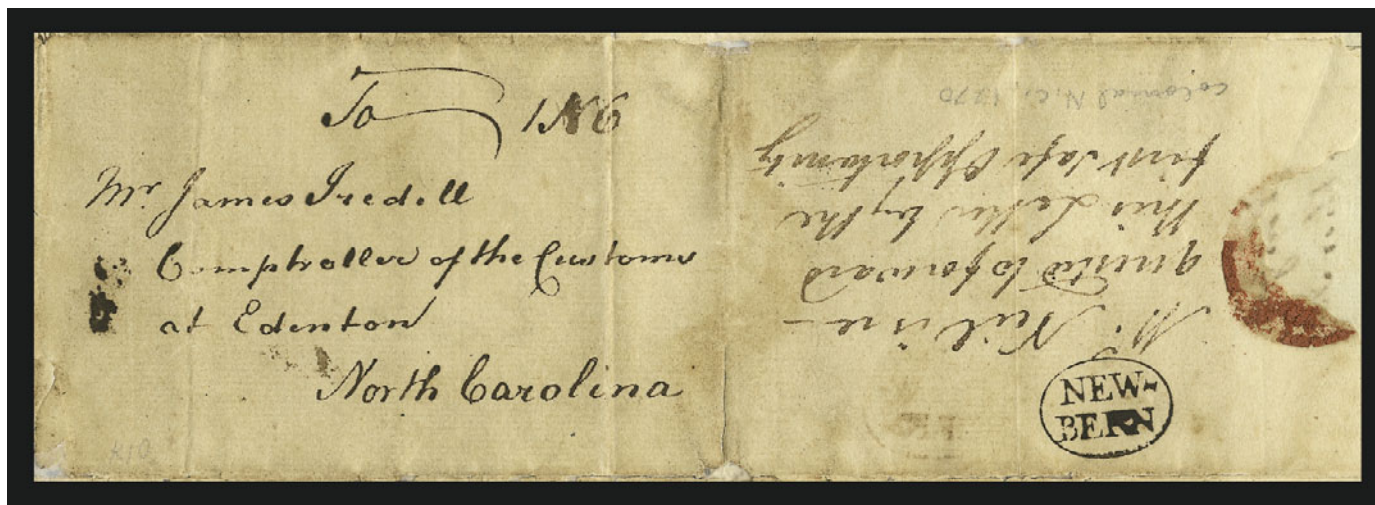 To 1N6
Mr. James Iredell
Comptroller of the Customs
at Edenton
North Carolina
Mr. Neil is re-
quested to forward
this Letter by the
first safe Opportunity
colonial N.C. 1770
NEW-
BERN